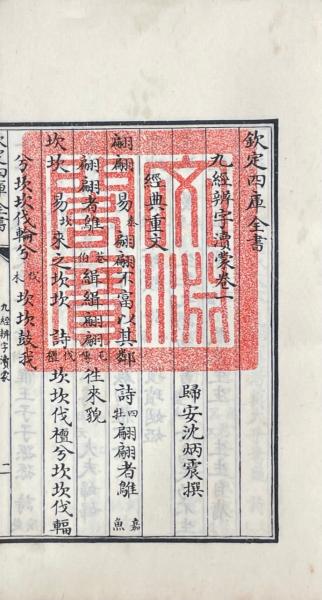 欽定四庫全書
九經辨字瀆蒙卷一
歸安沈炳震撰
經典重文
翩翩 易泰翩翩不富以其鄰 詩四牡翩翩者鵻 嘉魚
翩翩者鵻 巷伯緝緝翩翩毛傳往來貌
坎坎 易坎來之坎坎 詩伐檀坎坎伐檀兮坎坎伐輻
兮坎坎伐輪兮 伐木坎坎鼓我
欽定四庫全書
九經辨字瀆蒙